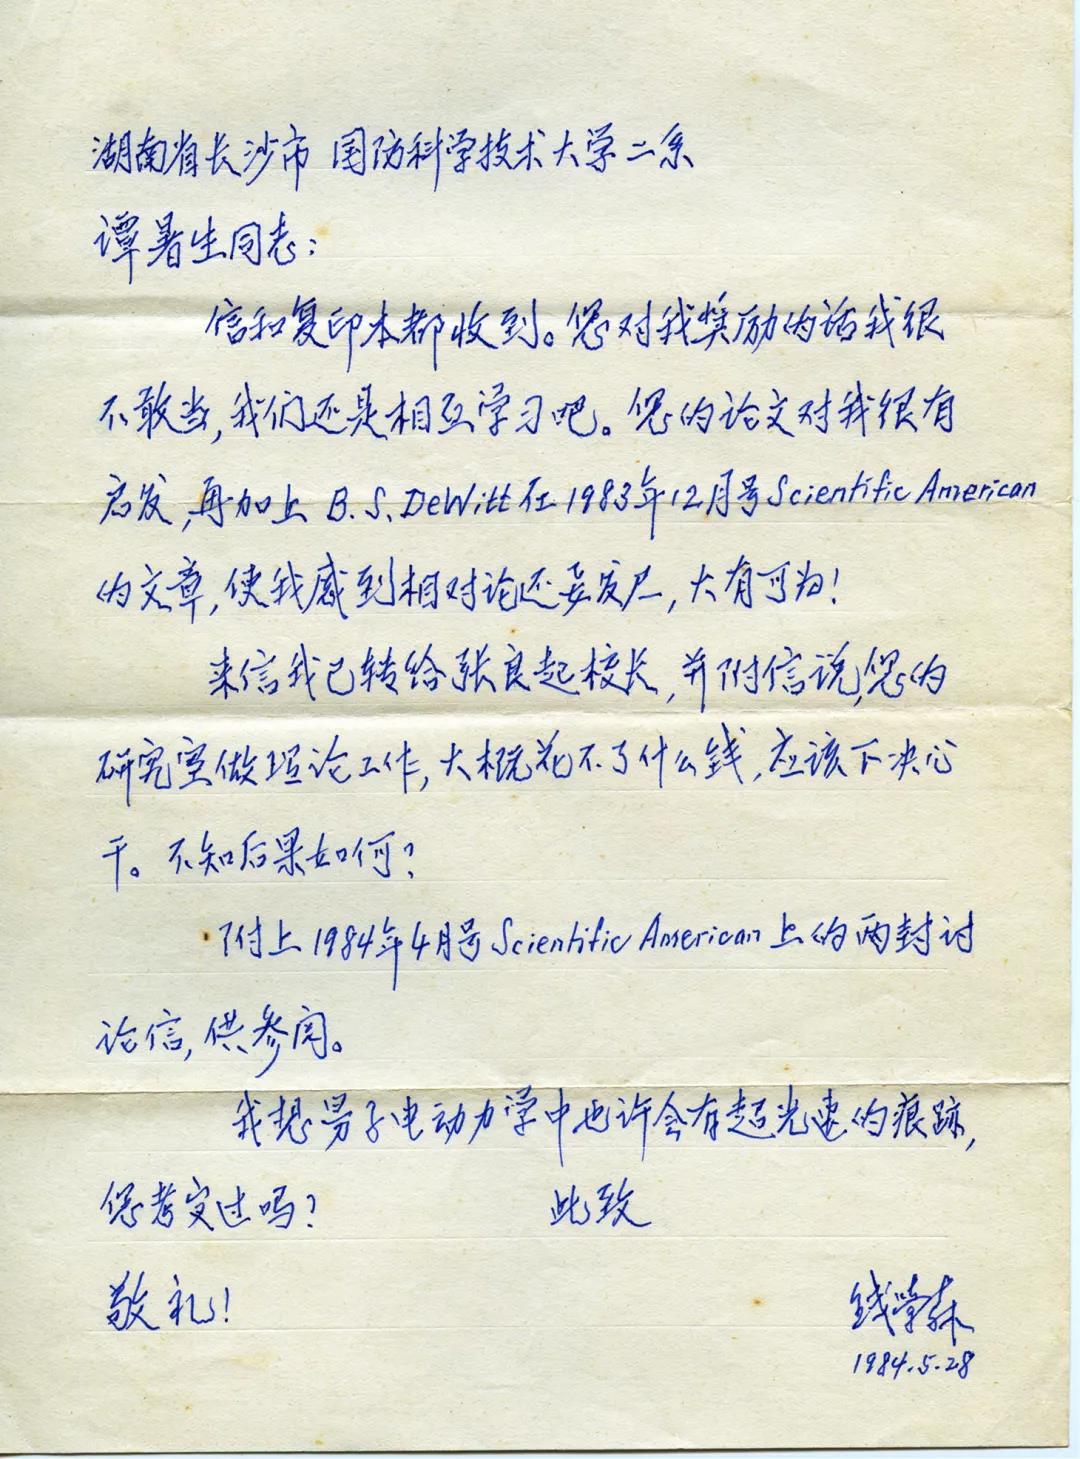 湖南省长沙市 国防科学技术大学二系
谭暑生同志：
信和复印本都收到。您对我奖励的话我很
不敢当，我们还是相互学习吧。您的论文对我很有
启发，再加上 B.S.DeWitt 在1983年12月号 Scientific American
的文章，使我感到相对论还要发展，大有可为！
来信我已转给张良起校长，并附信说，您的
研究室做理论工作，大概花不了什么钱，应该下决心
干。不知后果如何？
附上1984年4月号 Scientific American 上的两封讨
论信，供参阅。
我想量子电动力学中也许会有超光速的痕迹，
您考究过吗？ 此致
敬礼！
钱学森
1984.5.28